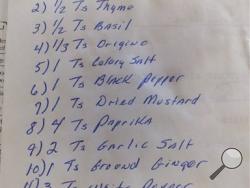 2) ½ Ts Thyme
3) ½ Ts Basil
4) ⅓ Ts Origino
5) 1 Ts Celery Salt
6) 1 Ts Black Pepper
7) 1 Ts Dried Mustard
8) 4 Ts Paprika
9) 2 Ts Garlic Salt
10) 1 Ts Ground Ginger
11) 3 Ts White Pepper